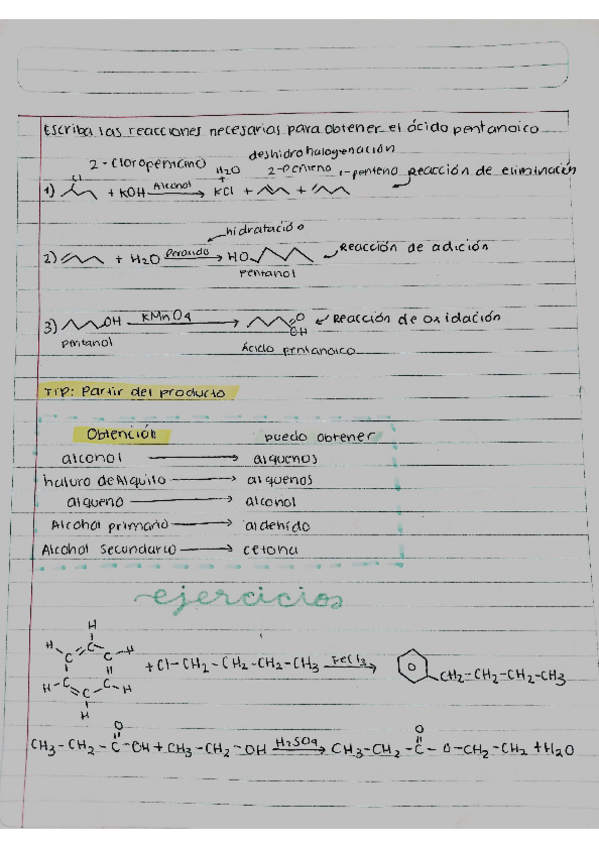 Escriba las reacciones necesarias para obtener el ácido pentanoico
deshidrohalogenación
2-cloropentano H2O 2-penteno 1-penteno Reacción de eliminación
1) Cl + KOH Alcohol → KCl + +
hidratación
2) + H2O Peroxido → HO Reacción de adición
pentanol
3) OH KMnO4 → O OH Reacción de oxidación
pentanol Ácido pentanoico
TIP: Partir del producto
Obtención puedo obtener
alcohol → alquenos
haluro de Alquilo → alquenos
alqueno → alcohol
Alcohol primario → aldehido
Alcohol Secundario → cetona
ejercicios
H
H C C H
C + Cl-CH2-CH2-CH2-CH3 FeCl3 → CH2-CH2-CH2-CH3
H-C C C-H
H
O O
CH3-CH2-C-OH + CH3-CH2-OH H2SO4 → CH3-CH2-C-O-CH2-CH2 + H2O